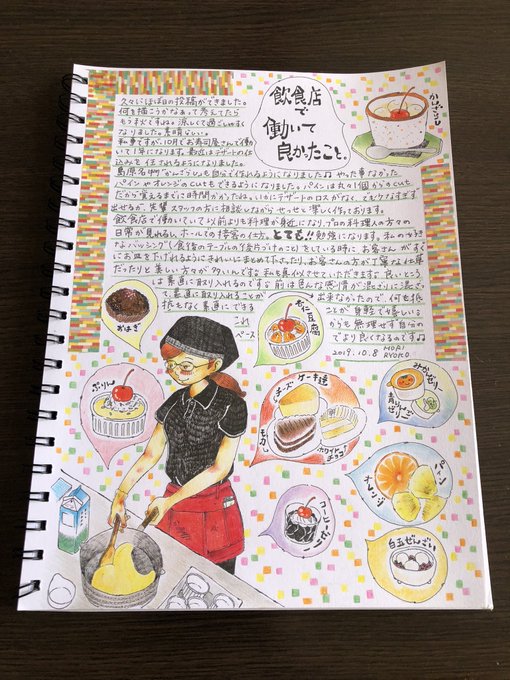 飲食店
で
働いて
良かったこと。
久々にほぼ日の投稿ができました。
何を描こうかなぁって考えてたら
もう秋ですね。涼しくて過ごしやすく
なりました。素晴らしい。
私事ですが、10月でお寿司屋さんで働
いて1年になります。最近はデザートの仕
込みを任されるようになりました。
島原名物"かんざらし"も自分で作れるようになりました♫ やった事なかった
パインやオレンジのcutもできるようになりました。パインは丸々1個からのcut
だから覚えるまでに時間かかったねぇ。いかにデザートのロスがなく、でもケチなすぎず
出せるか、先輩スタッフの方に相談しながらせっせと楽しく作っております。
飲食店で働いていて以前よりも料理が身近になり、プロの料理人の方々の
日常が見れるし、ホールでの接客の仕方、とても!!勉強になります。私の好き
なバッシング(食後のテーブルの後片づけのこと)をしている時に、お客さんがすぐ
にお皿を下げれるようにきれいにまとめて下さったり、お客さんの方が丁寧な仕草
だったりと美しい方々が多いんですよ。私も真似させていただきます。良いという
は素直に取り入れるのです。前は色んな感情が混ざりに混ざっ
て素直に取り入れることが
出来なかったので、何も抵
抗もなく素直にできる
ことが身軽でうれしい。
これ
からも無理せず自分の
ペース
でより良くなるのです♫
2019.10.8
MORI
RYOKO
かんざらし
おはぎ
杏仁豆腐
ぷりん
チーズケーキ達
モカ
ホワイトチョコ
みかんゼリー
オレンジ
パイン
コーヒーゼリー
白玉ぜんざい